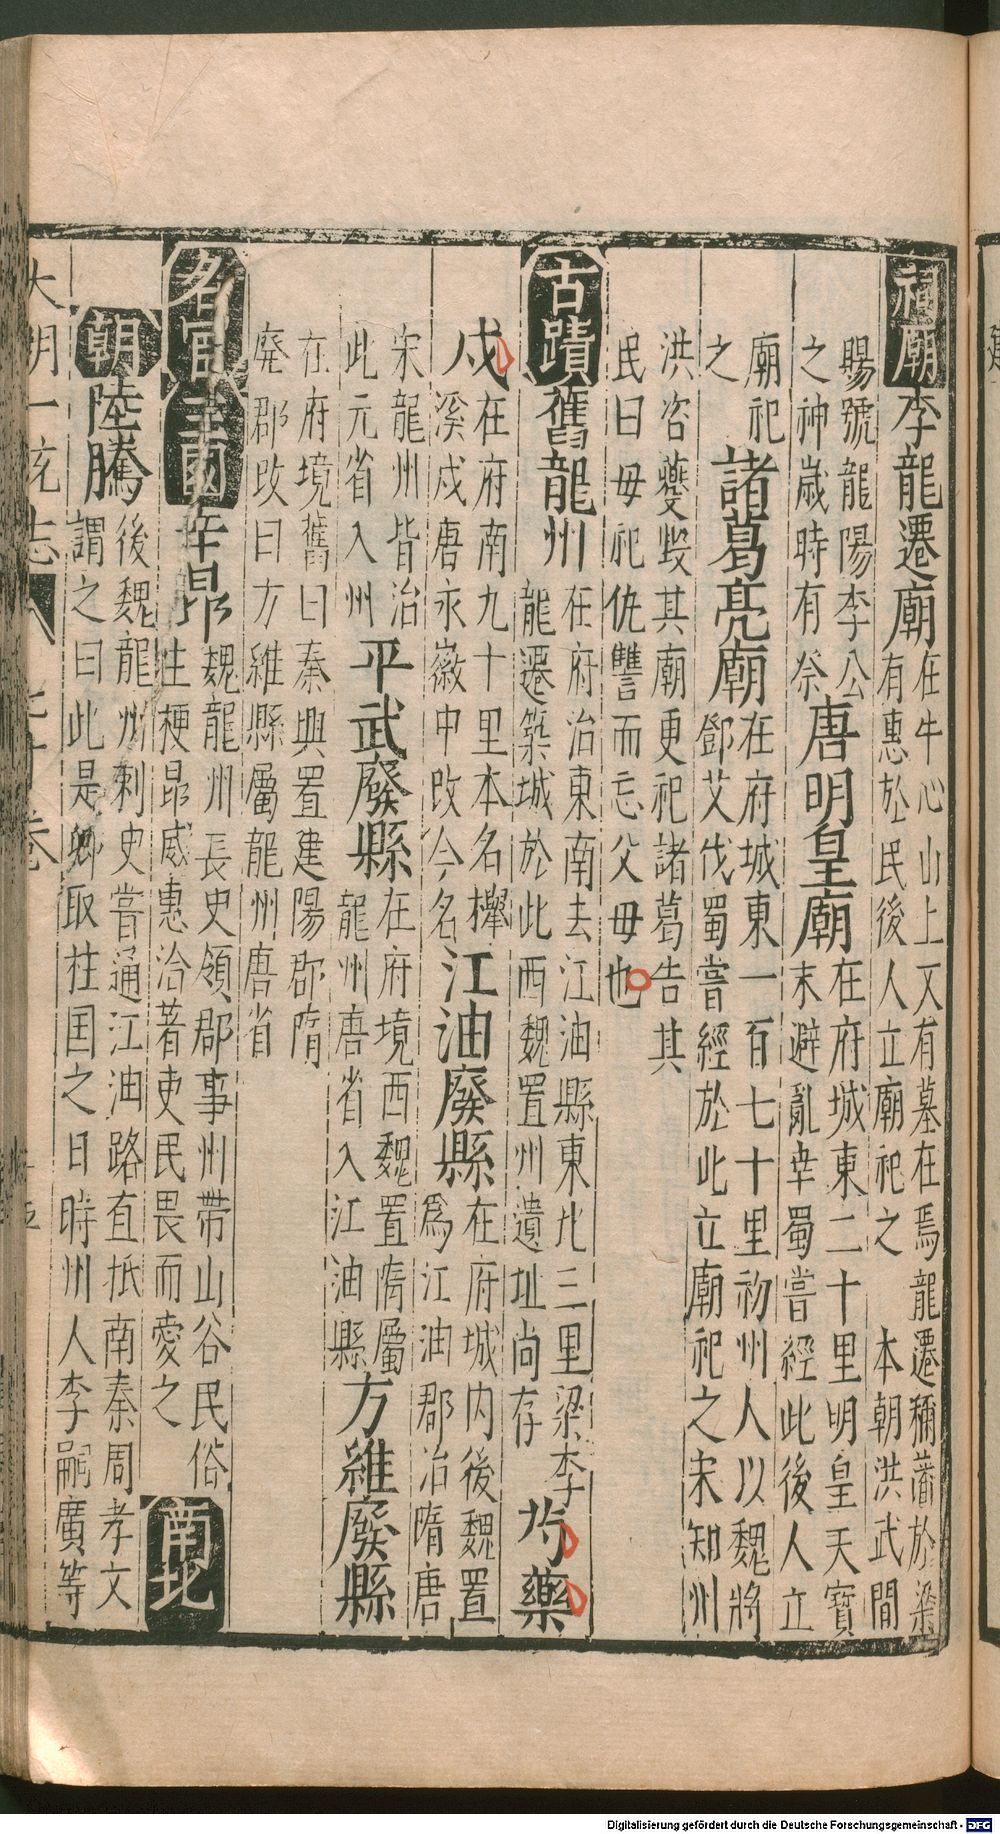 祠廟李龍遷廟在牛心山上又有墓在焉龍遷彌蕾於梁
有惠於民後人立廟祀之　本朝洪武間
賜號龍陽李公
之神歲時有祭唐明皇廟在府城東二十里明皇天寶
末避亂幸蜀嘗經此後人立
廟祀
之諸葛亮廟在府城東一百七十里初州人以魏將
鄧艾伐蜀嘗經於此立廟祀之宋知州
洪咨夔毀其廟更祀諸葛告其
民曰毋祀仇讐而忘父母也
古蹟舊龍州在府治東南去江油縣東北三里梁李
龍遷築城於此西魏置州遺址尚存芍藥
戍在府南九十里本名攑
人溪戍唐永徽中改今名江油廢縣在府城內後魏置
爲江油郡治隋唐
宋龍州皆治
此元省入州平武廢縣在府境西魏置隋屬
龍州唐省入江油縣方維廢縣
在府境舊曰秦興置建陽郡隋
廢郡改曰方維縣屬龍州唐省
名宦三國辛昴魏龍州長史領郡事州帶山谷民俗
生梗昴威惠洽著吏民畏而愛之南北
朝陸騰後魏龍州刺史嘗通江油路直抵南秦周孝文
謂之曰此是卿取柱国之日時州人李嗣廣等
大明一统志　七十卷
Digitalisierung gefördert durch die Deutsche Forschungsgemeinschaft - DFG